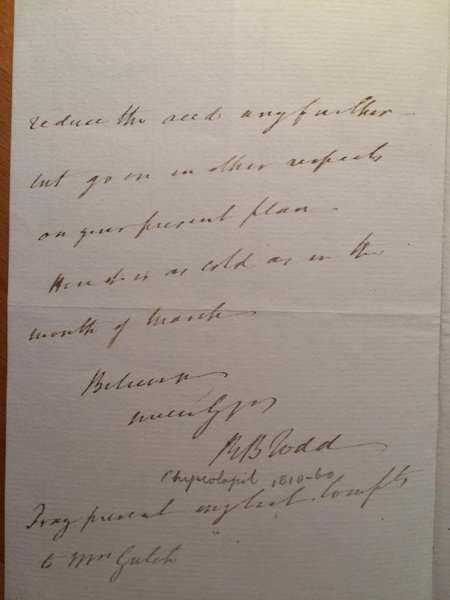 reduce the acid any further –
but go on in other respects
on your present plan –
Here it is as cold as in the
month of March
Believe me
RB Todd
Physiologist 1810-60
Pray present my best Compts
to Mrs